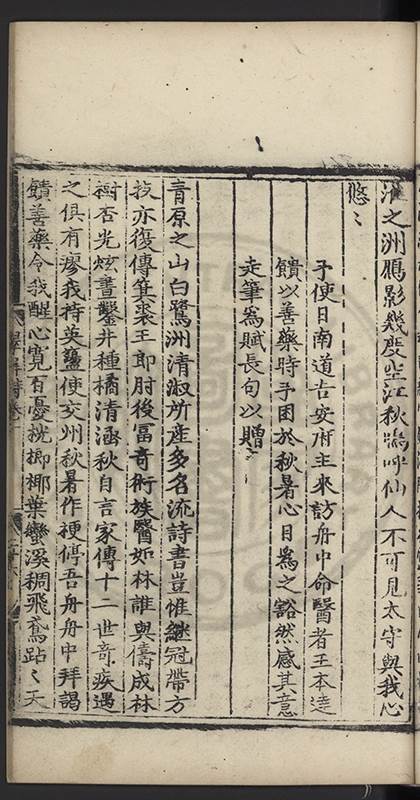 之洲鴈影幾度空江秋嗚呼仙人不可見太守與我心
悠〻
予使日南道吉安府主來訪舟中命醫者王本達
饋以善藥時予困於秋暑心目爲之豁然感其意
走筆爲賦長句以贈
青原之山白鷺洲清淑所產多名流詩書豈惟繼冠帶方
技亦復傳箕裘王郎肘後富奇術族醫如林誰與儔成林
樹杏光炫晝鑿井種橘清涵秋自言家傳十二世奇疾遇
之俱有瘳我持英蕩使交州秋暑作梗停吾舟舟中拜謁
饋善藥令我醒心寬百憂桄榔椰葉蠻溪稠飛鳶跕〻天